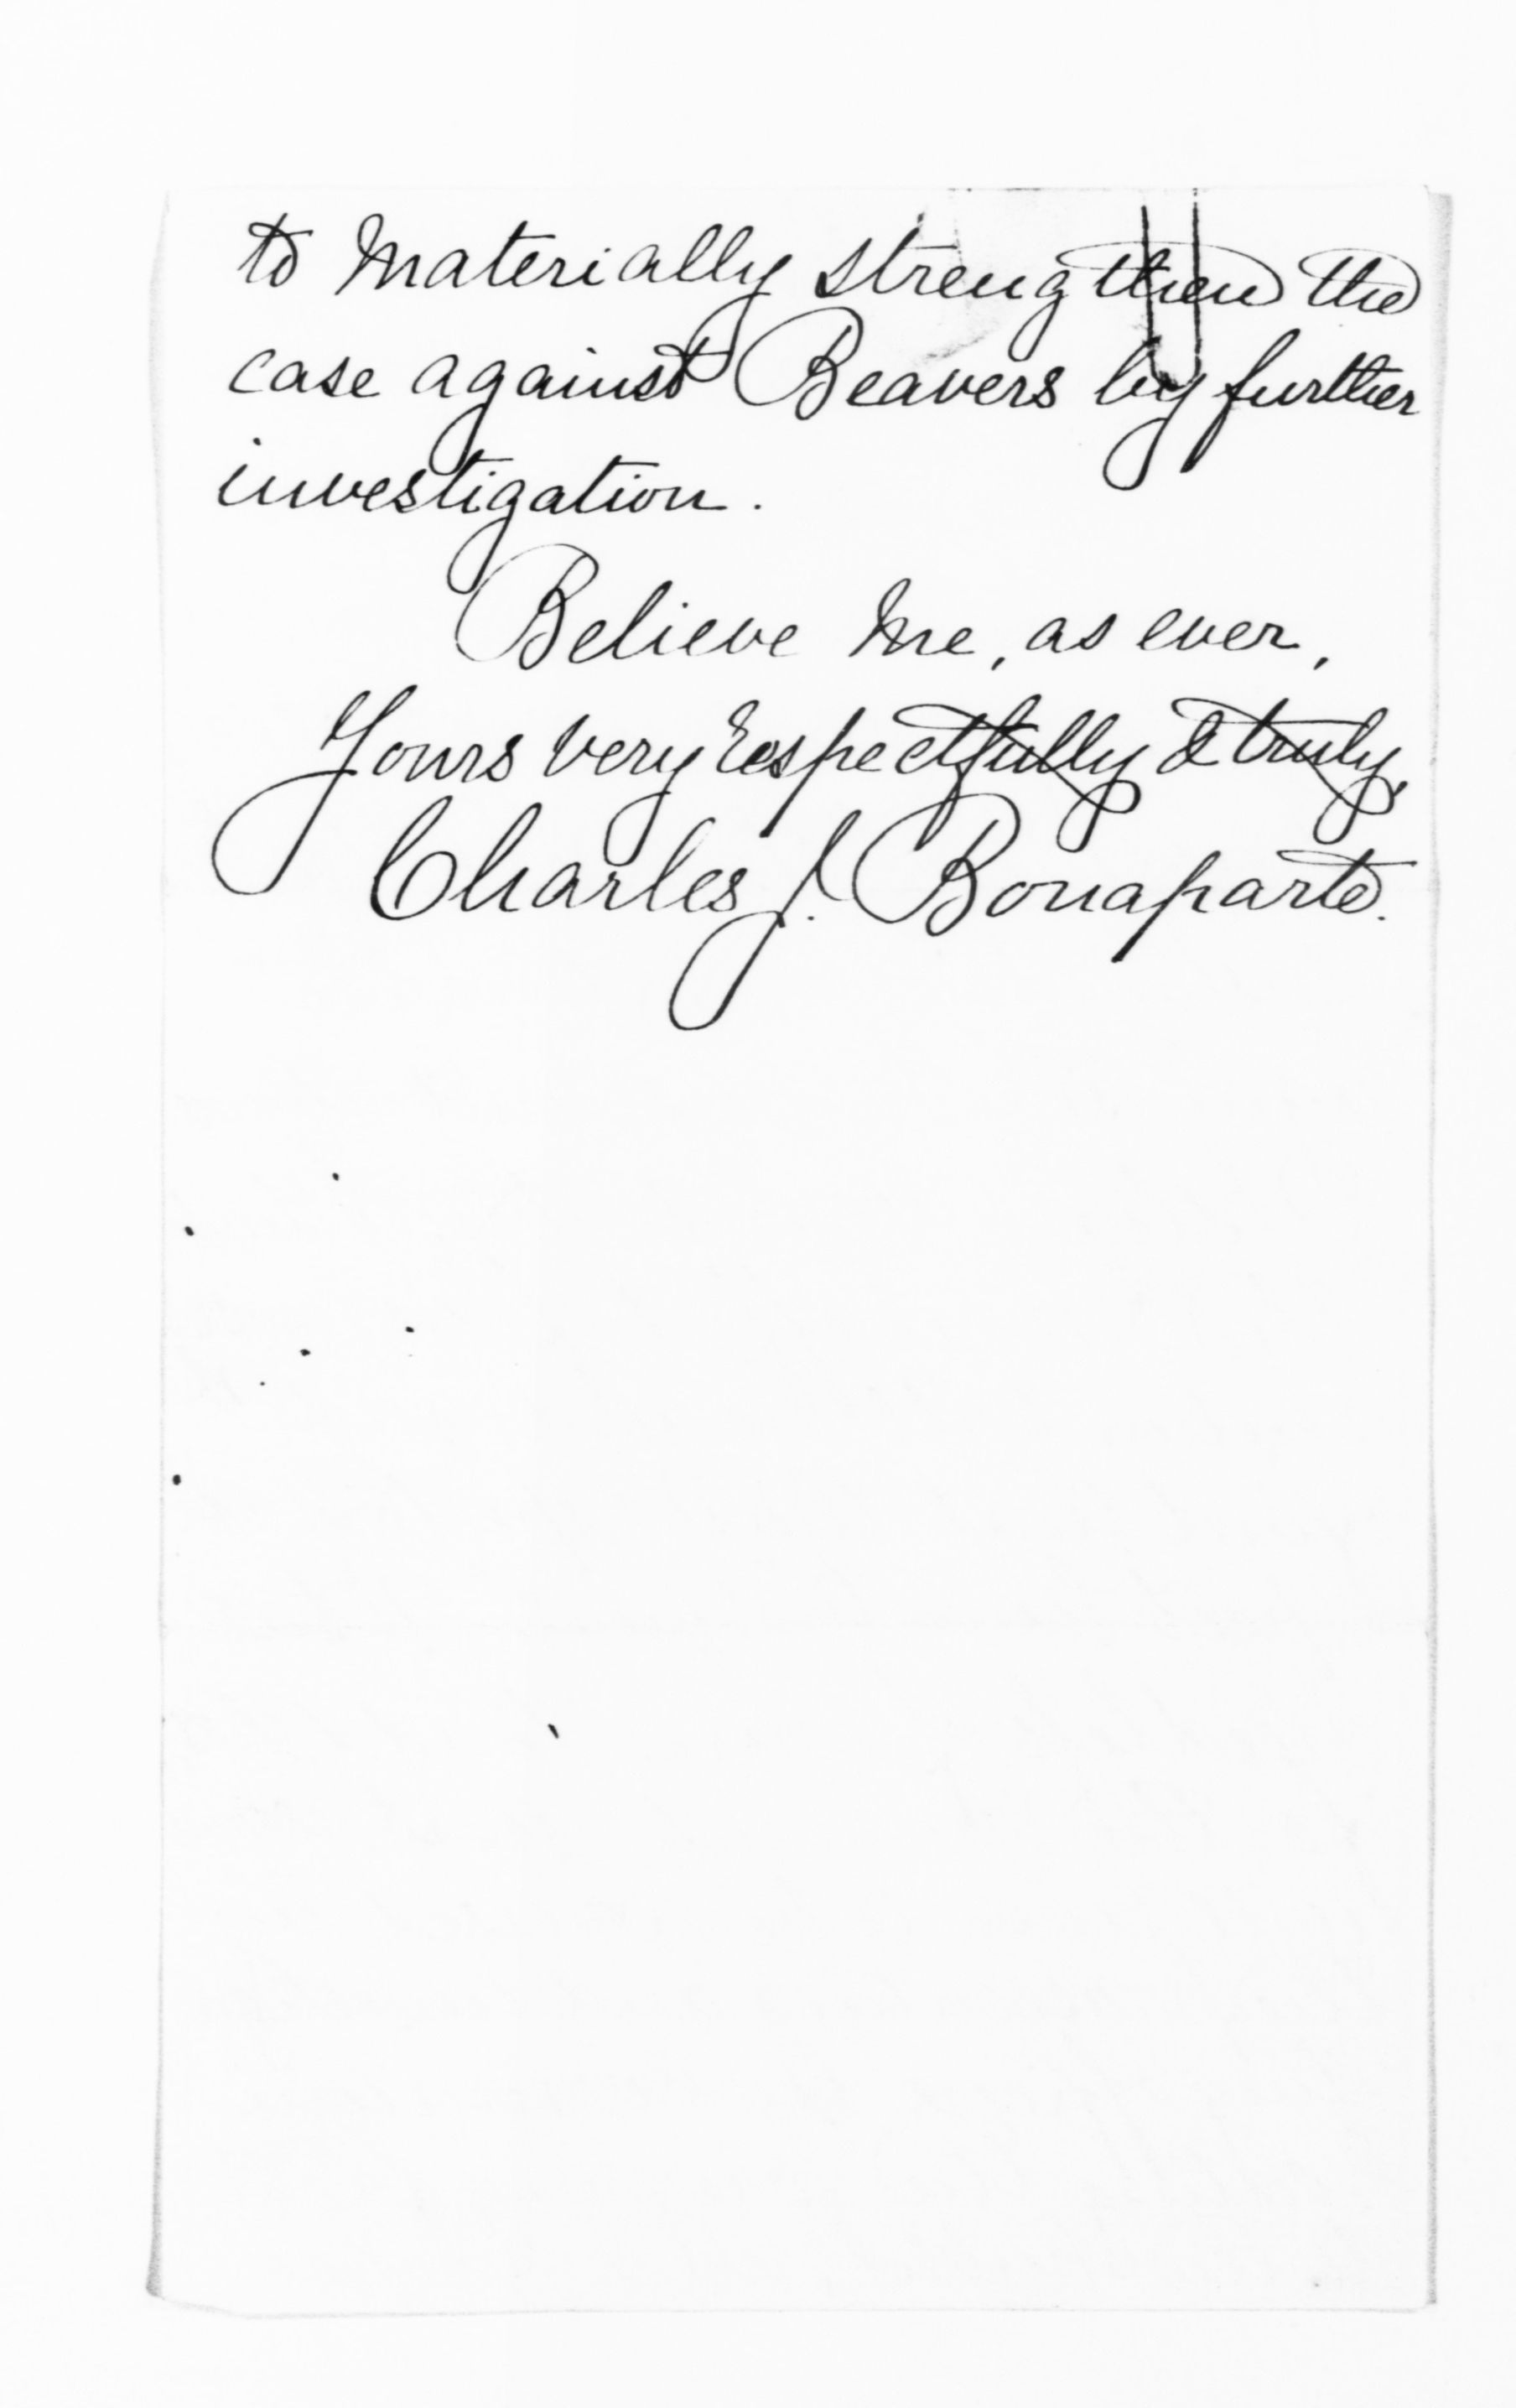 to materially strengthen the
case against Beavers by further
investigation.
Believe me, as ever,
Yours very respectfully & truly,
Charles J. Bonaparte.